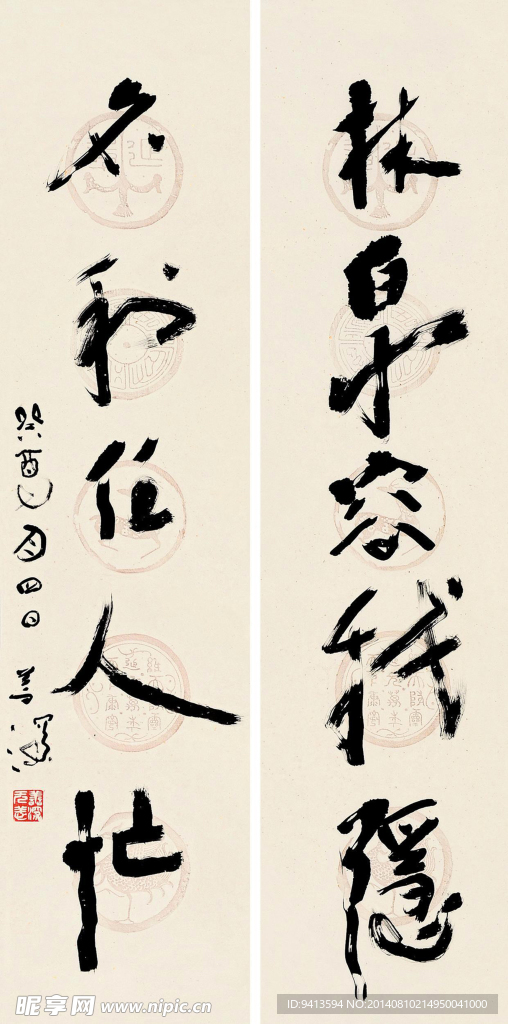 林泉容我隐
名利任人忙
癸酉七月四日
昵享网 www.nipic.cn
ID:9413594 NO:20140810214950041000